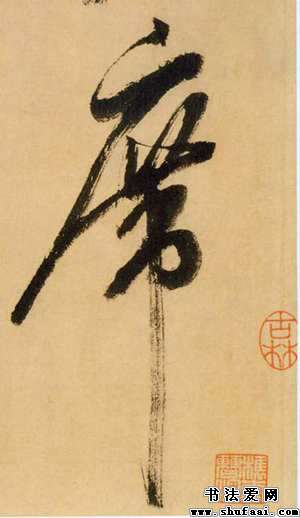 席
古林
书法爱网
www.shufaai.com